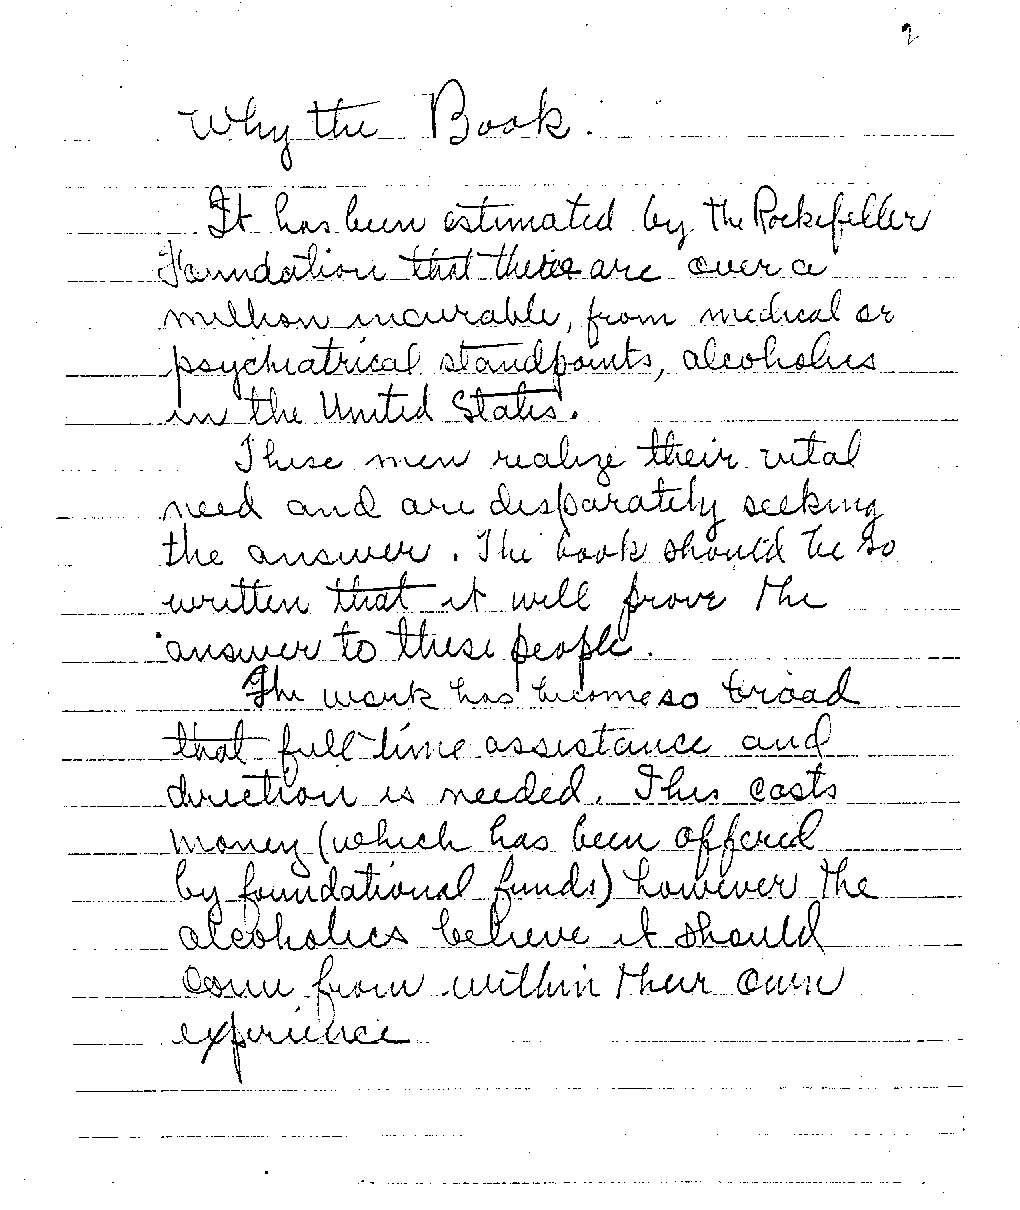 2
Why the Book.
It has been estimated by the Rockefeller
Foundation that there are over a
million incurable, from medical or
psychiatrical standpoints, alcoholics
in the United States.
These men realize their vital
need and are disparately seeking
the answer. The book should be so
written that it will prove the
answer to these people.
The work has become so broad
that full time assistance and
direction is needed. This costs
money (which has been offered
by foundational funds) however the
alcoholics believe it should
come from within their own
experience